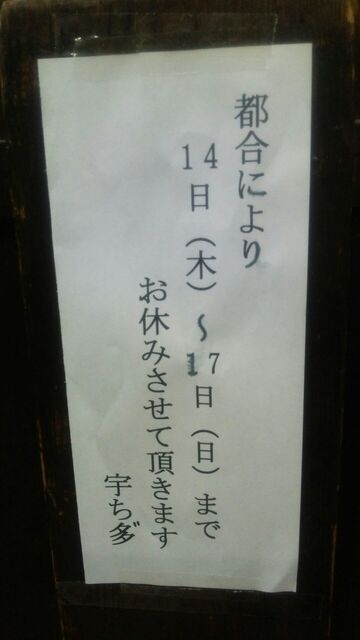 都合により
14日(木)~17日(日)まで
お休みさせて頂きます
宇ち多゛